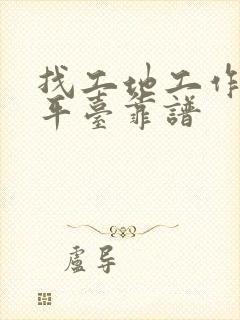 找工地工作
平臺靠譜
盧导